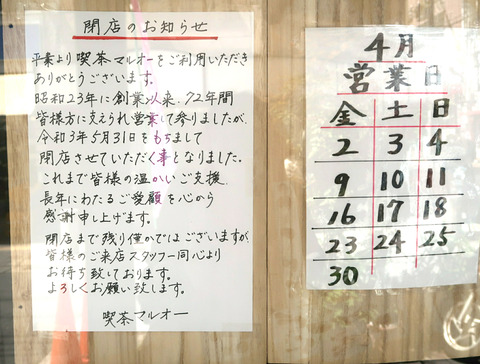 閉店のお知らせ
平素より喫茶マルオーをご利用いただき
ありがとうございます。
昭和23年に創業以来、72年間
皆様方に支えられ営業して参りましたが、
令和3年5月31日をもちまして
閉店させていただく事となりました。
これまで皆様の温かいご支援、
長年にわたるご愛顧を心から
感謝申し上げます。
閉店まで残り僅かではございますが、
皆様のご来店スタッフ一同心より
お待ち致しております。
よろしくお願い致します。
喫茶マルオー
4月
営業日
金 土 日
2 3 4
9 10 11
16 17 18
23 24 25
30